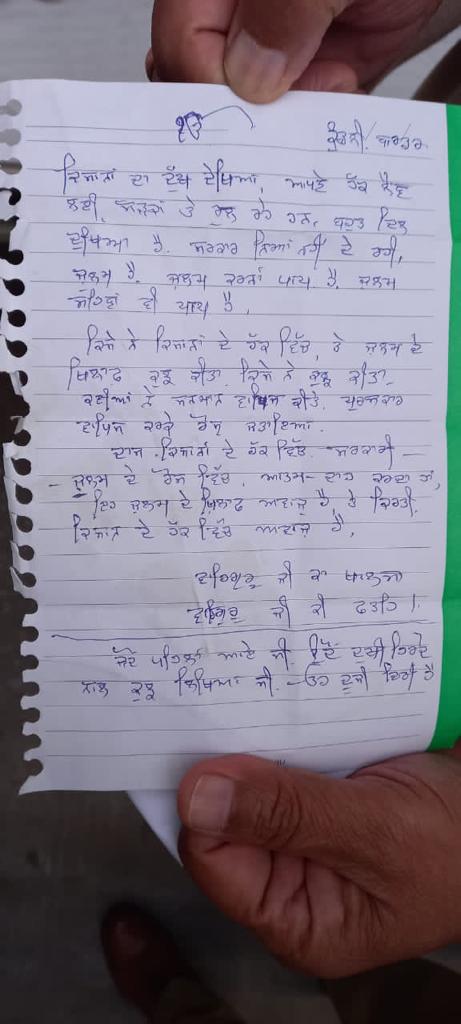 ੴ
ਕੁੰਡਲੀ ਬਾਰਡਰ
ਕਿਸਾਨਾਂ ਦਾ ਦੁੱਖ ਦੇਖਿਆ, ਆਪਣੇ ਹੱਕ ਲੈਣ
ਲਈ, ਸੜਕਾਂ ਤੇ ਰੁਲ ਰਹੇ ਹਨ, ਬਹੁਤ ਦਿਲ
ਦੁਖਿਆ ਹੈ. ਸਰਕਾਰ ਨਿਆਂ ਨਹੀਂ ਦੇ ਰਹੀ,
ਜ਼ੁਲਮ ਹੈ. ਜ਼ੁਲਮ ਕਰਨਾਂ ਪਾਪ ਹੈ. ਜ਼ੁਲਮ
ਸਹਿਣਾਂ ਵੀ ਪਾਪ ਹੈ.
ਕਿਸੇ ਨੇ ਕਿਸਾਨਾਂ ਦੇ ਹੱਕ ਵਿੱਚ, ਤੇ ਜ਼ੁਲਮ ਦੇ
ਖਿਲਾਫ ਕੁਝ ਕੀਤਾ. ਕਿਸੇ ਨੇ ਕੁਝ ਕੀਤਾ.
ਕਈਆਂ ਨੇ ਸਨਮਾਨ ਵਾਪਿਸ ਕੀਤੇ. ਪੁਰਸਕਾਰ
ਵਾਪਿਸ ਕਰਕੇ ਰੋਸ ਜਤਾਇਆ.
ਦਾਸ ਕਿਸਾਨਾਂ ਦੇ ਹੱਕ ਵਿੱਚ. ਸਰਕਾਰੀ -
- ਜ਼ੁਲਮ ਦੇ ਰੋਸ ਵਿੱਚ. ਆਤਮ - ਦਾਹ ਕਰਦਾ ਹਾਂ,
ਇਹ ਜ਼ੁਲਮ ਦੇ ਖ਼ਿਲਾਫ ਆਵਾਜ਼ ਹੈ, ਤੇ ਕਿਰਤੀ.
ਕਿਸਾਨ ਦੇ ਹੱਕ ਵਿੱਚ ਆਵਾਜ਼ ਹੈ,
ਵਾਹਿਗੁਰੂ ਜੀ ਕਾ ਖਾਲਸਾ
ਵਾਹਿਗੁਰੂ ਜੀ ਕੀ ਫਤਹਿ।.
ਜਦੋਂ ਪਹਿਲਾਂ ਆਏ ਸੀ. ਉਦੋਂ ਦੁਖੀ ਹਿਰਦੇ
ਨਾਲ ਕੁਝ ਲਿਖਿਆ ਸੀ. - ਇਹ ਹੈ